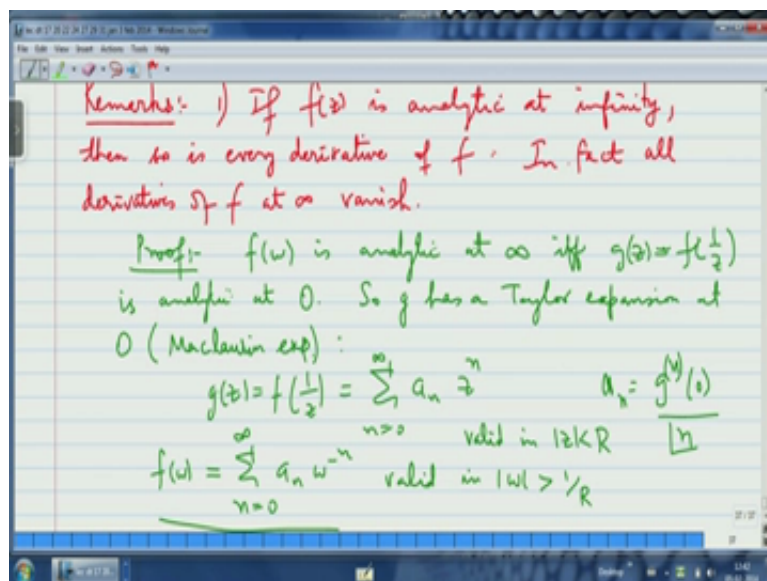 File Edit View Insert Actions Tools Help
Remarks:- 1) If f(z) is analytic at infinity,
then so is every derivative of f. In fact all
derivatives of f at ∞ vanish.
Proof:- f(w) is analytic at ∞ iff g(z) = f(1/z)
is analytic at 0. So g has a Taylor expansion at
0 (Maclaurin exp) :
g(z) = f(1/z) = ∑_{n=0}^{∞} a_n z^n a_n = g^{(n)}(0) / ⌊n
valid in |z|<R
f(w) = ∑_{n=0}^{∞} a_n w^{-n} valid in |w| > 1/R